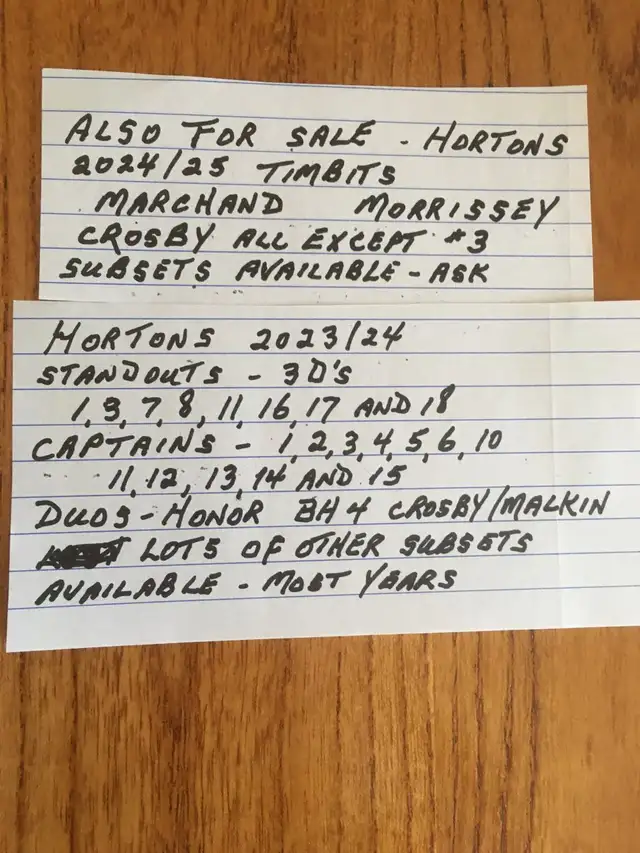 ALSO FOR SALE - HORTONS
2024/25 TIMBITS
MARCHAND MORRISSEY
CROSBY ALL EXCEPT #3
SUBSETS AVAILABLE - ASK
HORTONS 2023/24
STANDOUTS - 3D'S
1, 3, 7, 8, 11, 16, 17 AND 18
CAPTAINS - 1, 2, 3, 4, 5, 6, 10
11, 12, 13, 14 AND 15
DUOS - HONOR BH4 CROSBY/MALKIN
LOTS OF OTHER SUBSETS
AVAILABLE - MOST YEARS